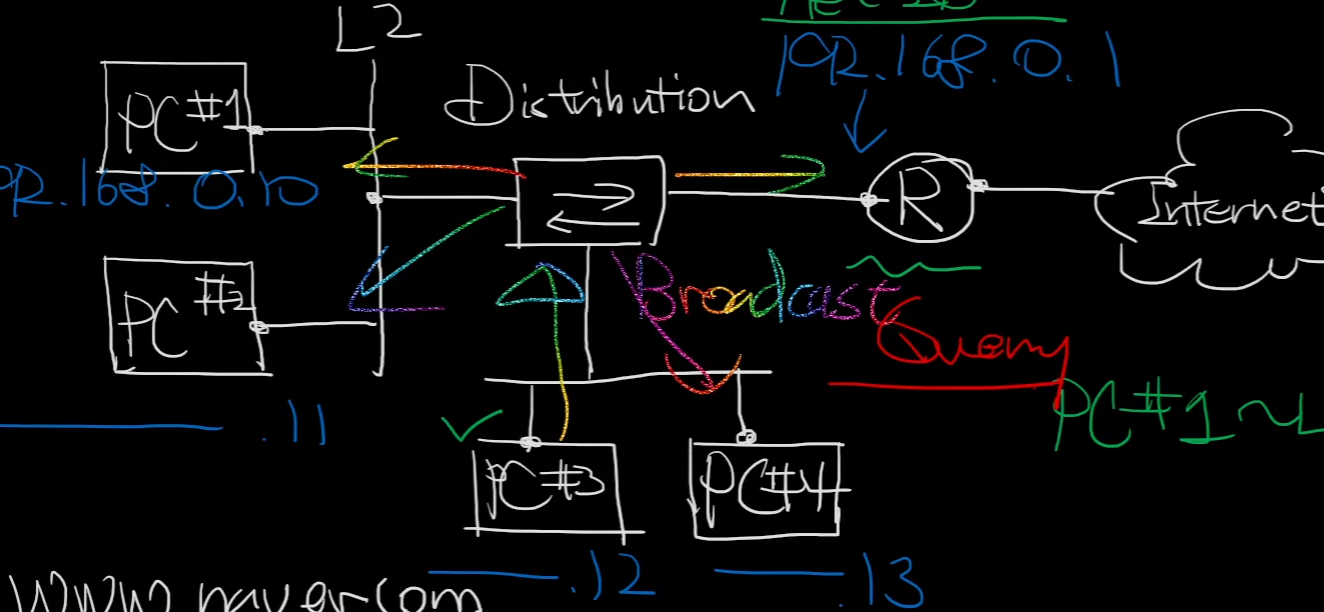 L2
192.168.0.1
Distribution
PC #1
R
Internet
PC #2
Broadcast
Query
.11
PC #3
PC #4
.12
.13
www.naver.com